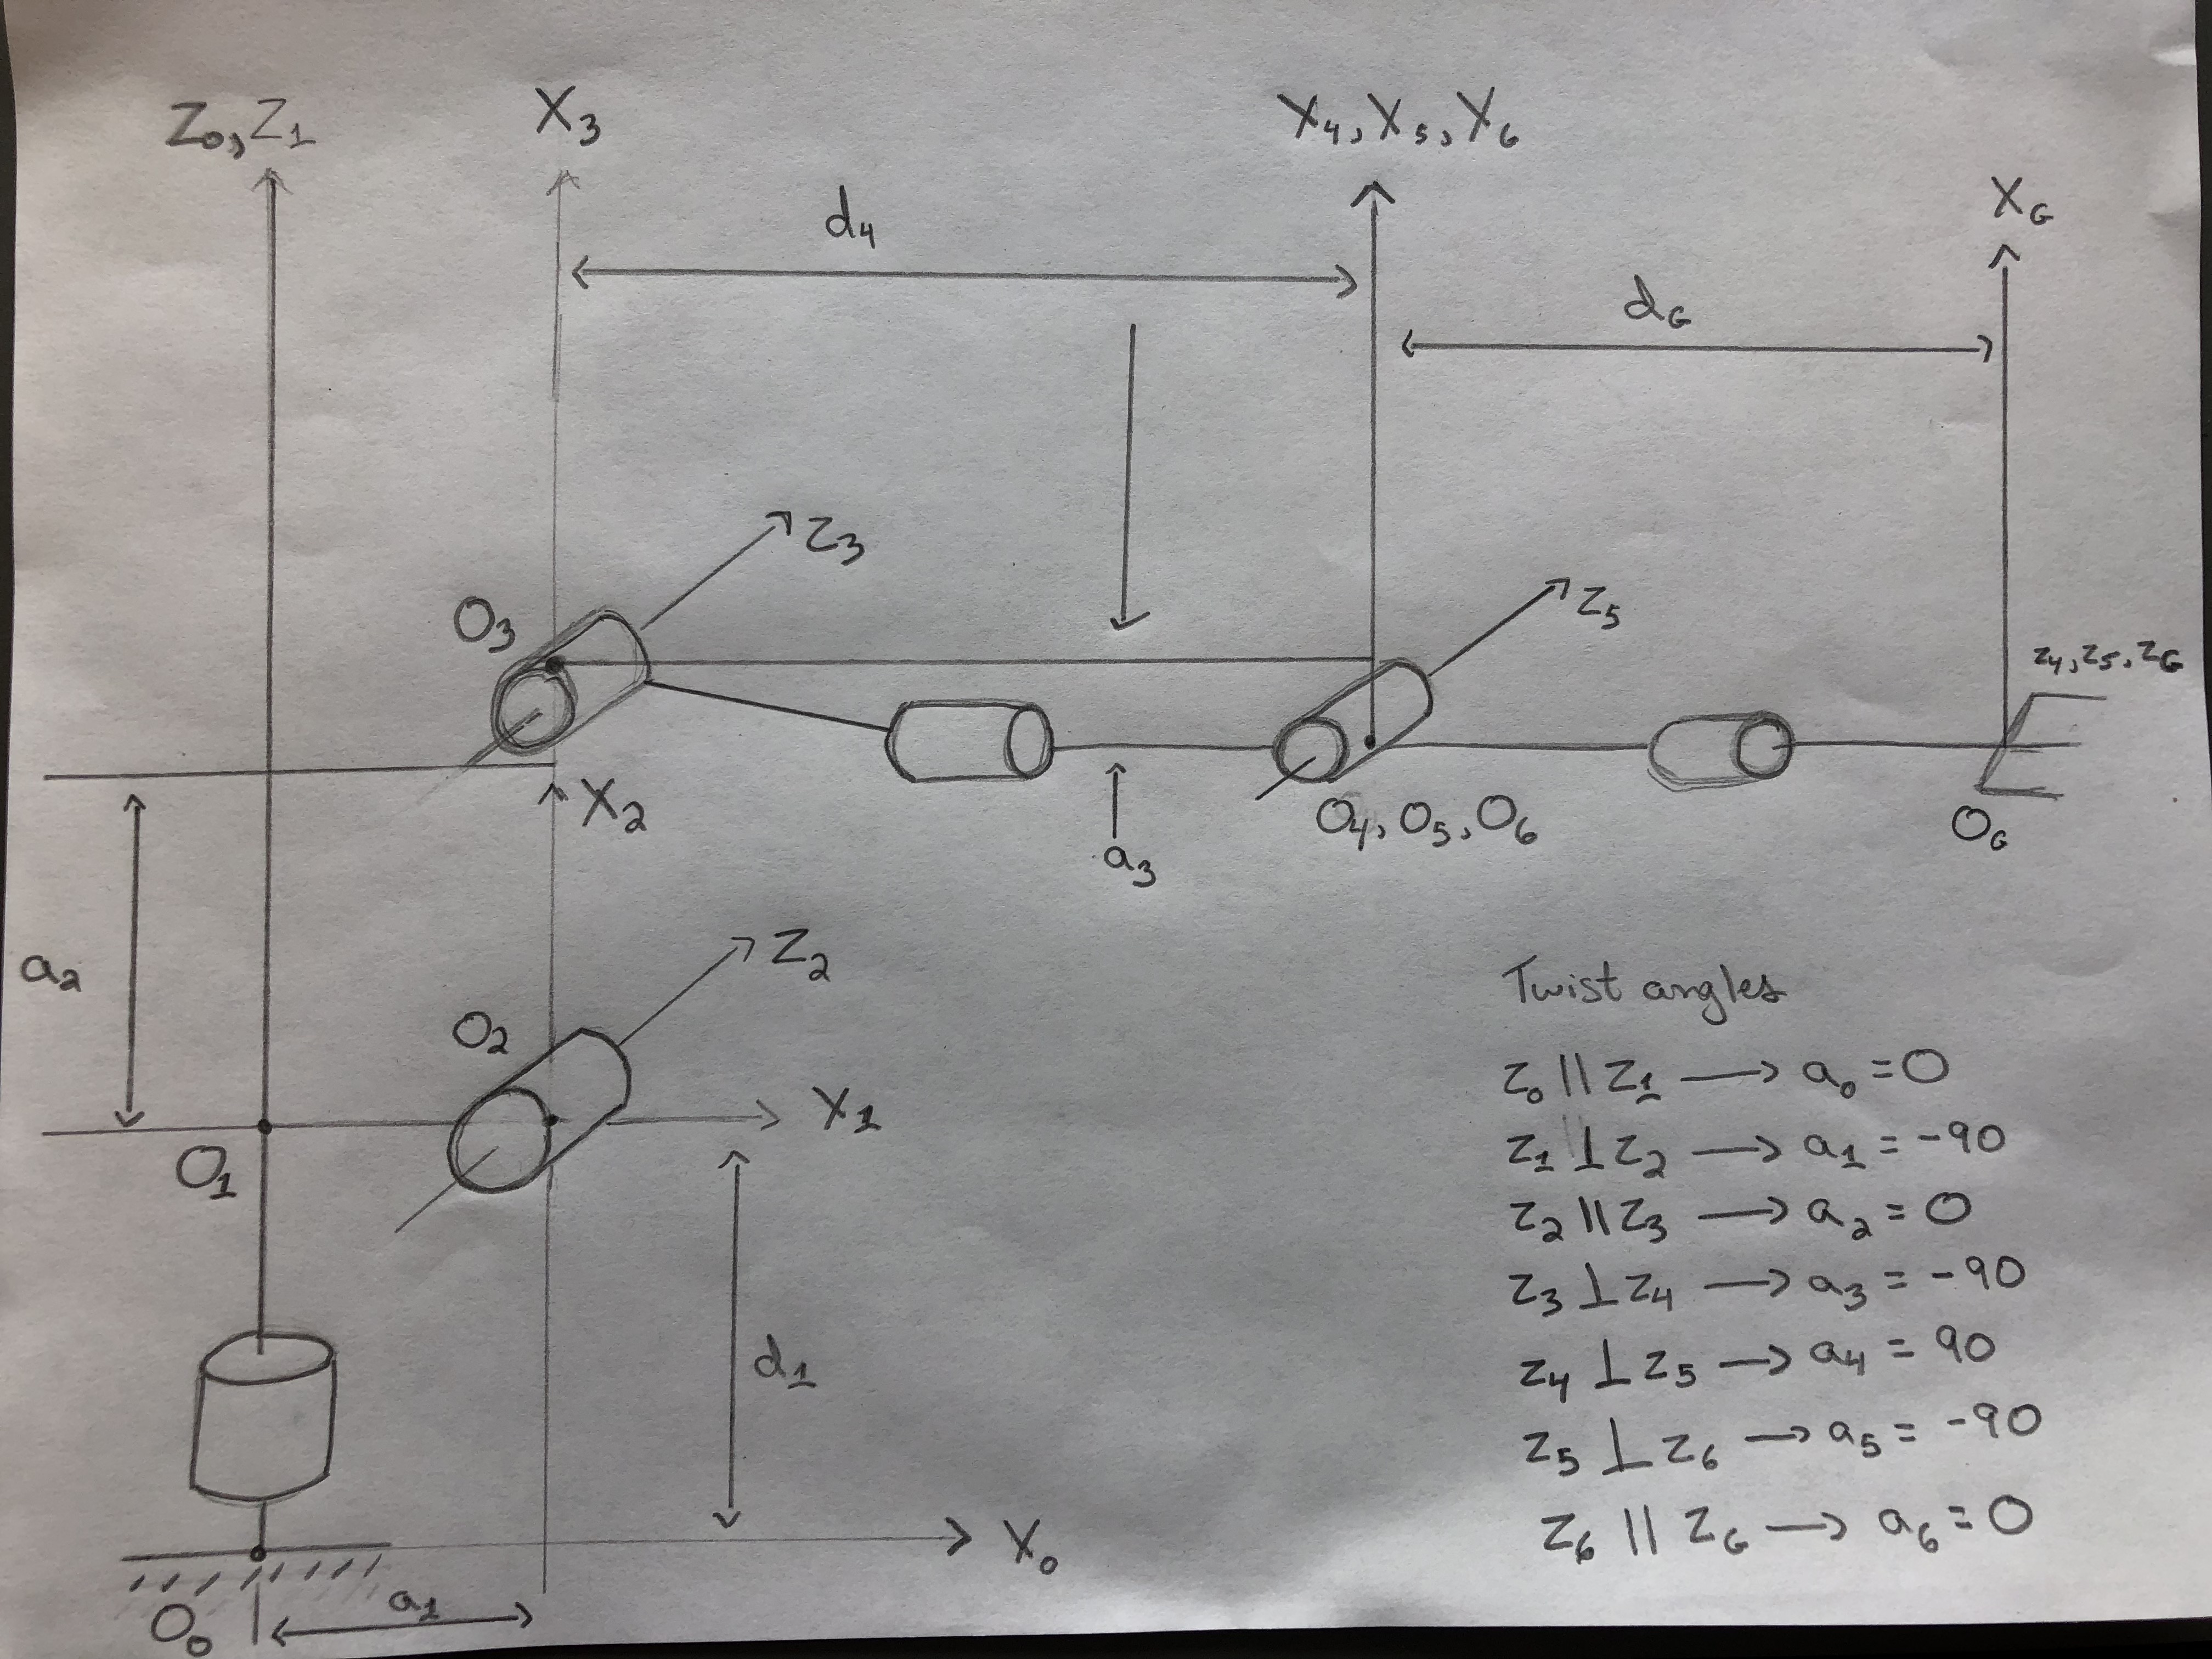 Z₀, Z₁
X₃
X₄, X₅, X₆
X_G
d₄
d_G
Z₃
O₃
Z₅
Z₄, Z₅, Z_G
X₂
O₄, O₅, O₆
O_G
a₃
a₂
Z₂
O₂
X₁
O₁
d₁
X₀
a₁
O₀
Twist angles
Z₀ || Z₁ → a₀ = 0
Z₁ ⊥ Z₂ → a₁ = -90
Z₂ || Z₃ → a₂ = 0
Z₃ ⊥ Z₄ → a₃ = -90
Z₄ ⊥ Z₅ → a₄ = 90
Z₅ ⊥ Z₆ → a₅ = -90
Z₆ || Z_G → a₆ = 0